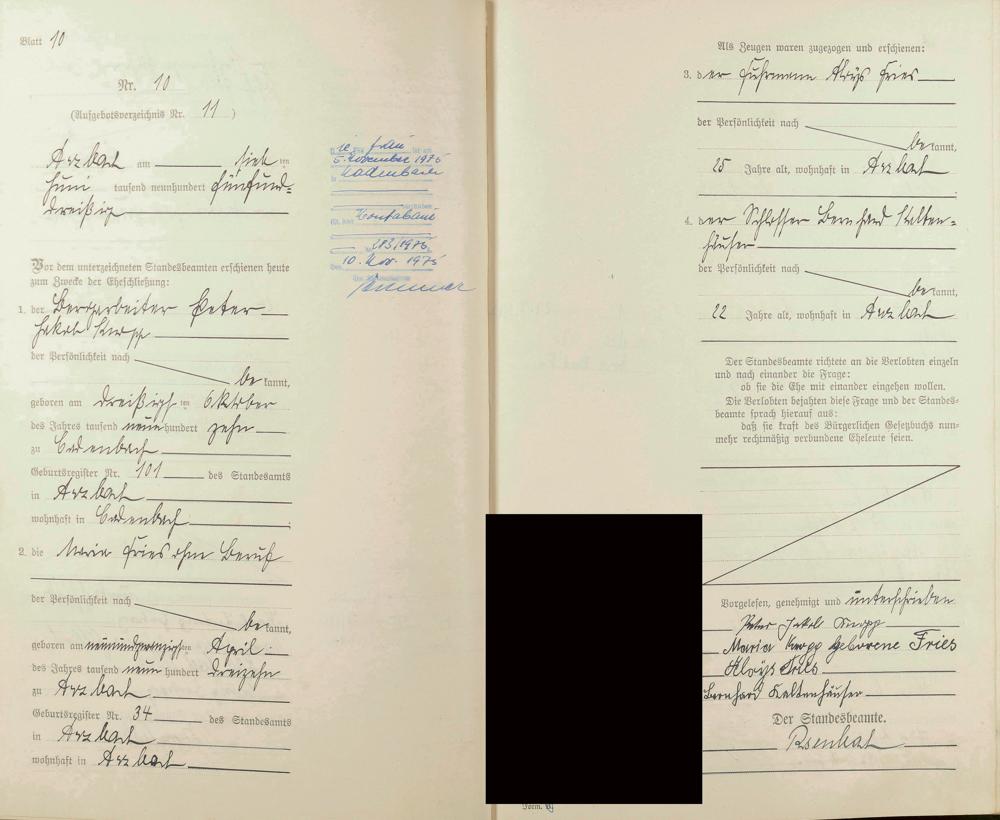 Blatt 10
Nr. 10
(Aufgebotsverzeichnis Nr. 11)
Arzbach am sieb ten
Juni tausend neunhundert fünfund-
dreißig
Vor dem unterzeichneten Standesbeamten erschienen heute
zum Zwecke der Eheschließung:
1. der Bergarbeiter Peter
Jakob Knopp
der Persönlichkeit nach
be kannt,
geboren am dreißigsten Oktober
des Jahres tausend neun hundert zehn
zu Cadenbach
Geburtsregister Nr. 101 des Standesamts
in Arzbach
wohnhaft in Cadenbach
2. die Maria Fries ohne Beruf
der Persönlichkeit nach
be kannt,
geboren am neunundzwanzigsten April
des Jahres tausend neun hundert dreizehn
zu Arzbach
Geburtsregister Nr. 34 des Standesamts
in Arzbach
wohnhaft in Arzbach
Frau
5. November 1975
Kadenbach
Montabaur
10. Nov. 1975
Als Zeugen waren zugezogen und erschienen:
3. der Fuhrmann Aloys Fries
der Persönlichkeit nach
be kannt,
25 Jahre alt, wohnhaft in Arzbach
4. der Schlosser Bernhard Kalten-
häuser
der Persönlichkeit nach
be kannt,
22 Jahre alt, wohnhaft in Arzbach
Der Standesbeamte richtete an die Verlobten einzeln
und nach einander die Frage:
ob sie die Ehe mit einander eingehen wollen.
Die Verlobten bejahten diese Frage und der Standes-
beamte sprach hierauf aus:
daß sie kraft des Bürgerlichen Gesetzbuchs nun-
mehr rechtmäßig verbundene Eheleute seien.
Vorgelesen, genehmigt und unterschrieben
Peter Jakob Knopp
Maria Knopp geborene Fries
Aloys Fries
Bernhard Kaltenhäuser
Der Standesbeamte.
Form.